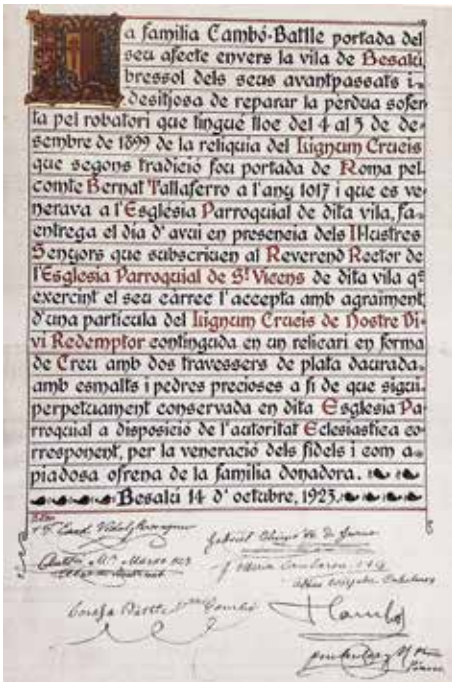 La familia Cambó-Batlle portada del
seu afecte envers la vila de Besalú,
bressol dels seus avantpassats i
desitjosa de reparar la pèrdua sofer-
ta pel robatori que tingué lloc del 4 al 5 de de-
sembre de 1899 de la reliquia del Lignum Crucis
que segons tradició fou portada de Roma pel
comte Bernat Tallaferro a l'any 1017 i que es ve-
nerava a l'Església Parroquial de dita vila, fa
entrega el dia d'avui en presencia dels Illustres
Senyors que subscriuen al Reverend Rector de
l'Esglesia Parroquial de St Vicens de dita vila qe
exercint el seu càrrec l'accepta amb agraiment,
d'una particula del Lignum Crucis de Nostre Di-
vi Redemptor continguda en un relicari en forma
de Creu amb dos travessers de plata daurada,
amb esmalts i pedres precioses a fi de que sigui
perpetuament conservada en dita Esglesia Pa-
rroquial a disposició de l'autoritat Eclesiastica co-
rresponent, per la veneració dels fidels i com a
piadosa ofrena de la familia donadora.
Besalú 14 d'octubre, 1923.
Card. Vidal y Barraquer
Cambó
F Cambó